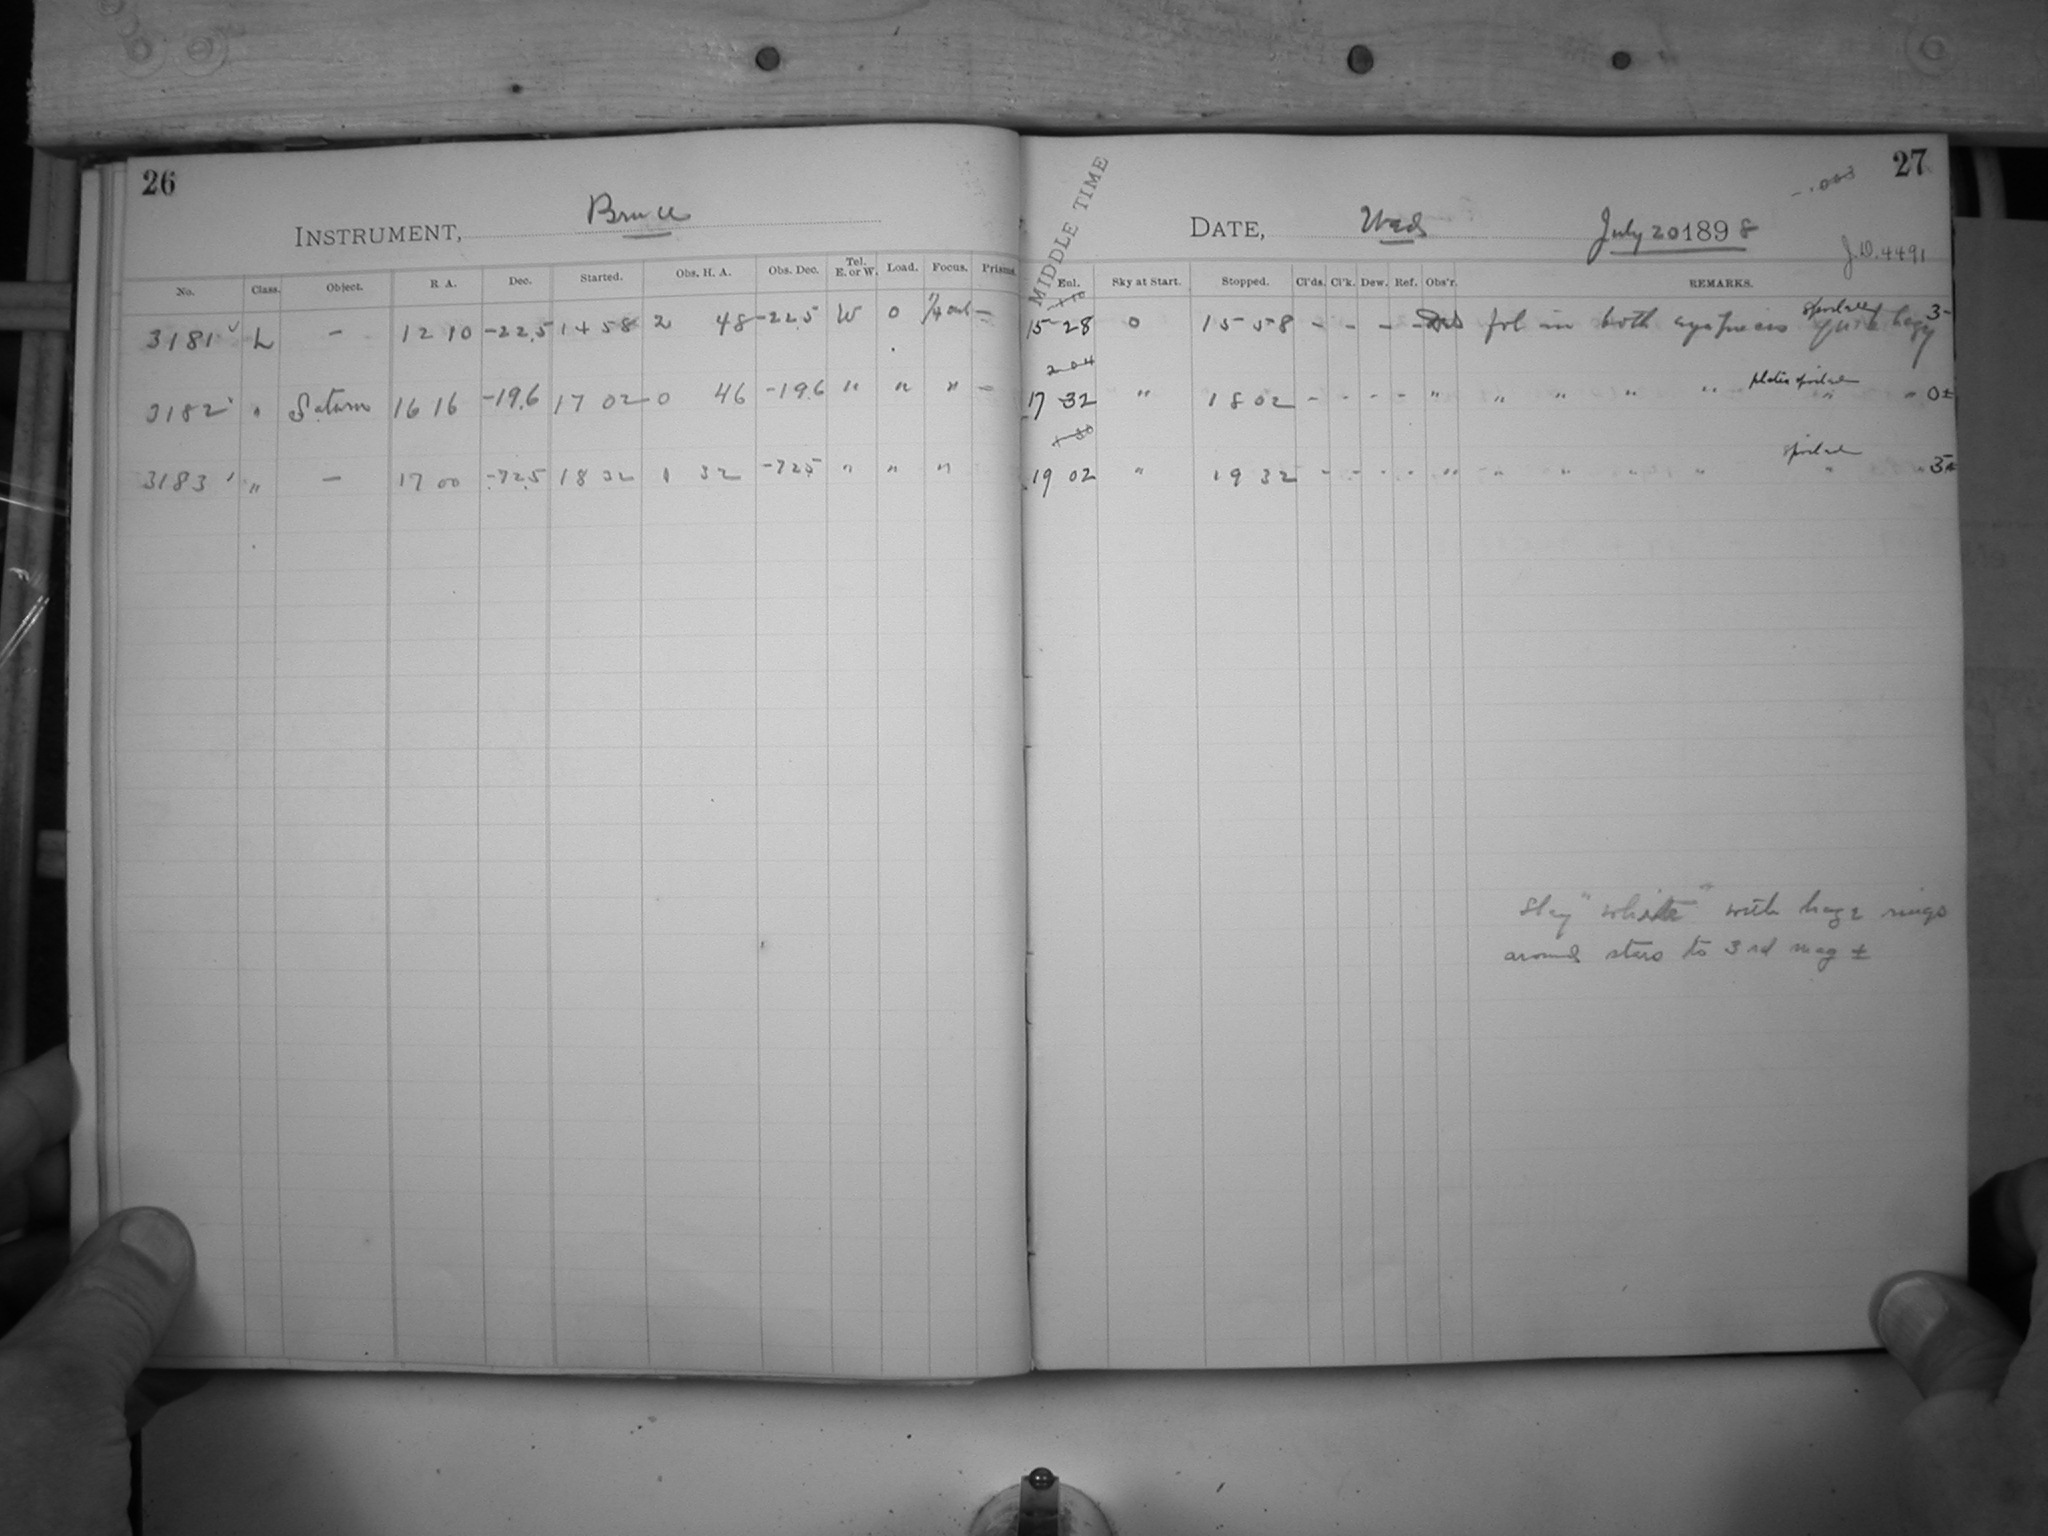 26
INSTRUMENT, Bruce
No. Class. Object. R A. Dec. Started. Obs. H. A. Obs. Dec. Tel. E. or W. Load. Focus. Prisms.
3181 L - 12 10 -22.5 14 58 2 48 -22.5 W 0 -
3182 " Saturn 16 16 -19.6 17 02 0 46 -19.6 " " " -
3183 " - 17 00 -72.5 18 32 1 32 -72.5 " " "
27
MIDDLE TIME
DATE, Wed July 20 1898
J.D. 4491
Enl. Sky at Start. Stopped. Cl'ds. Cl'k. Dew. Ref. Obs'r. REMARKS.
15 28 0 15 58 - - - - fol in both eyepieces quite hazy 3-
2 04
17 32 " 18 02 - - - - " " " " " plate spoiled " " 0±
1 30
spoiled
19 02 " 19 32 - - - - " " " " " "
Sky "white" with haze rings
around stars to 3rd mag ±